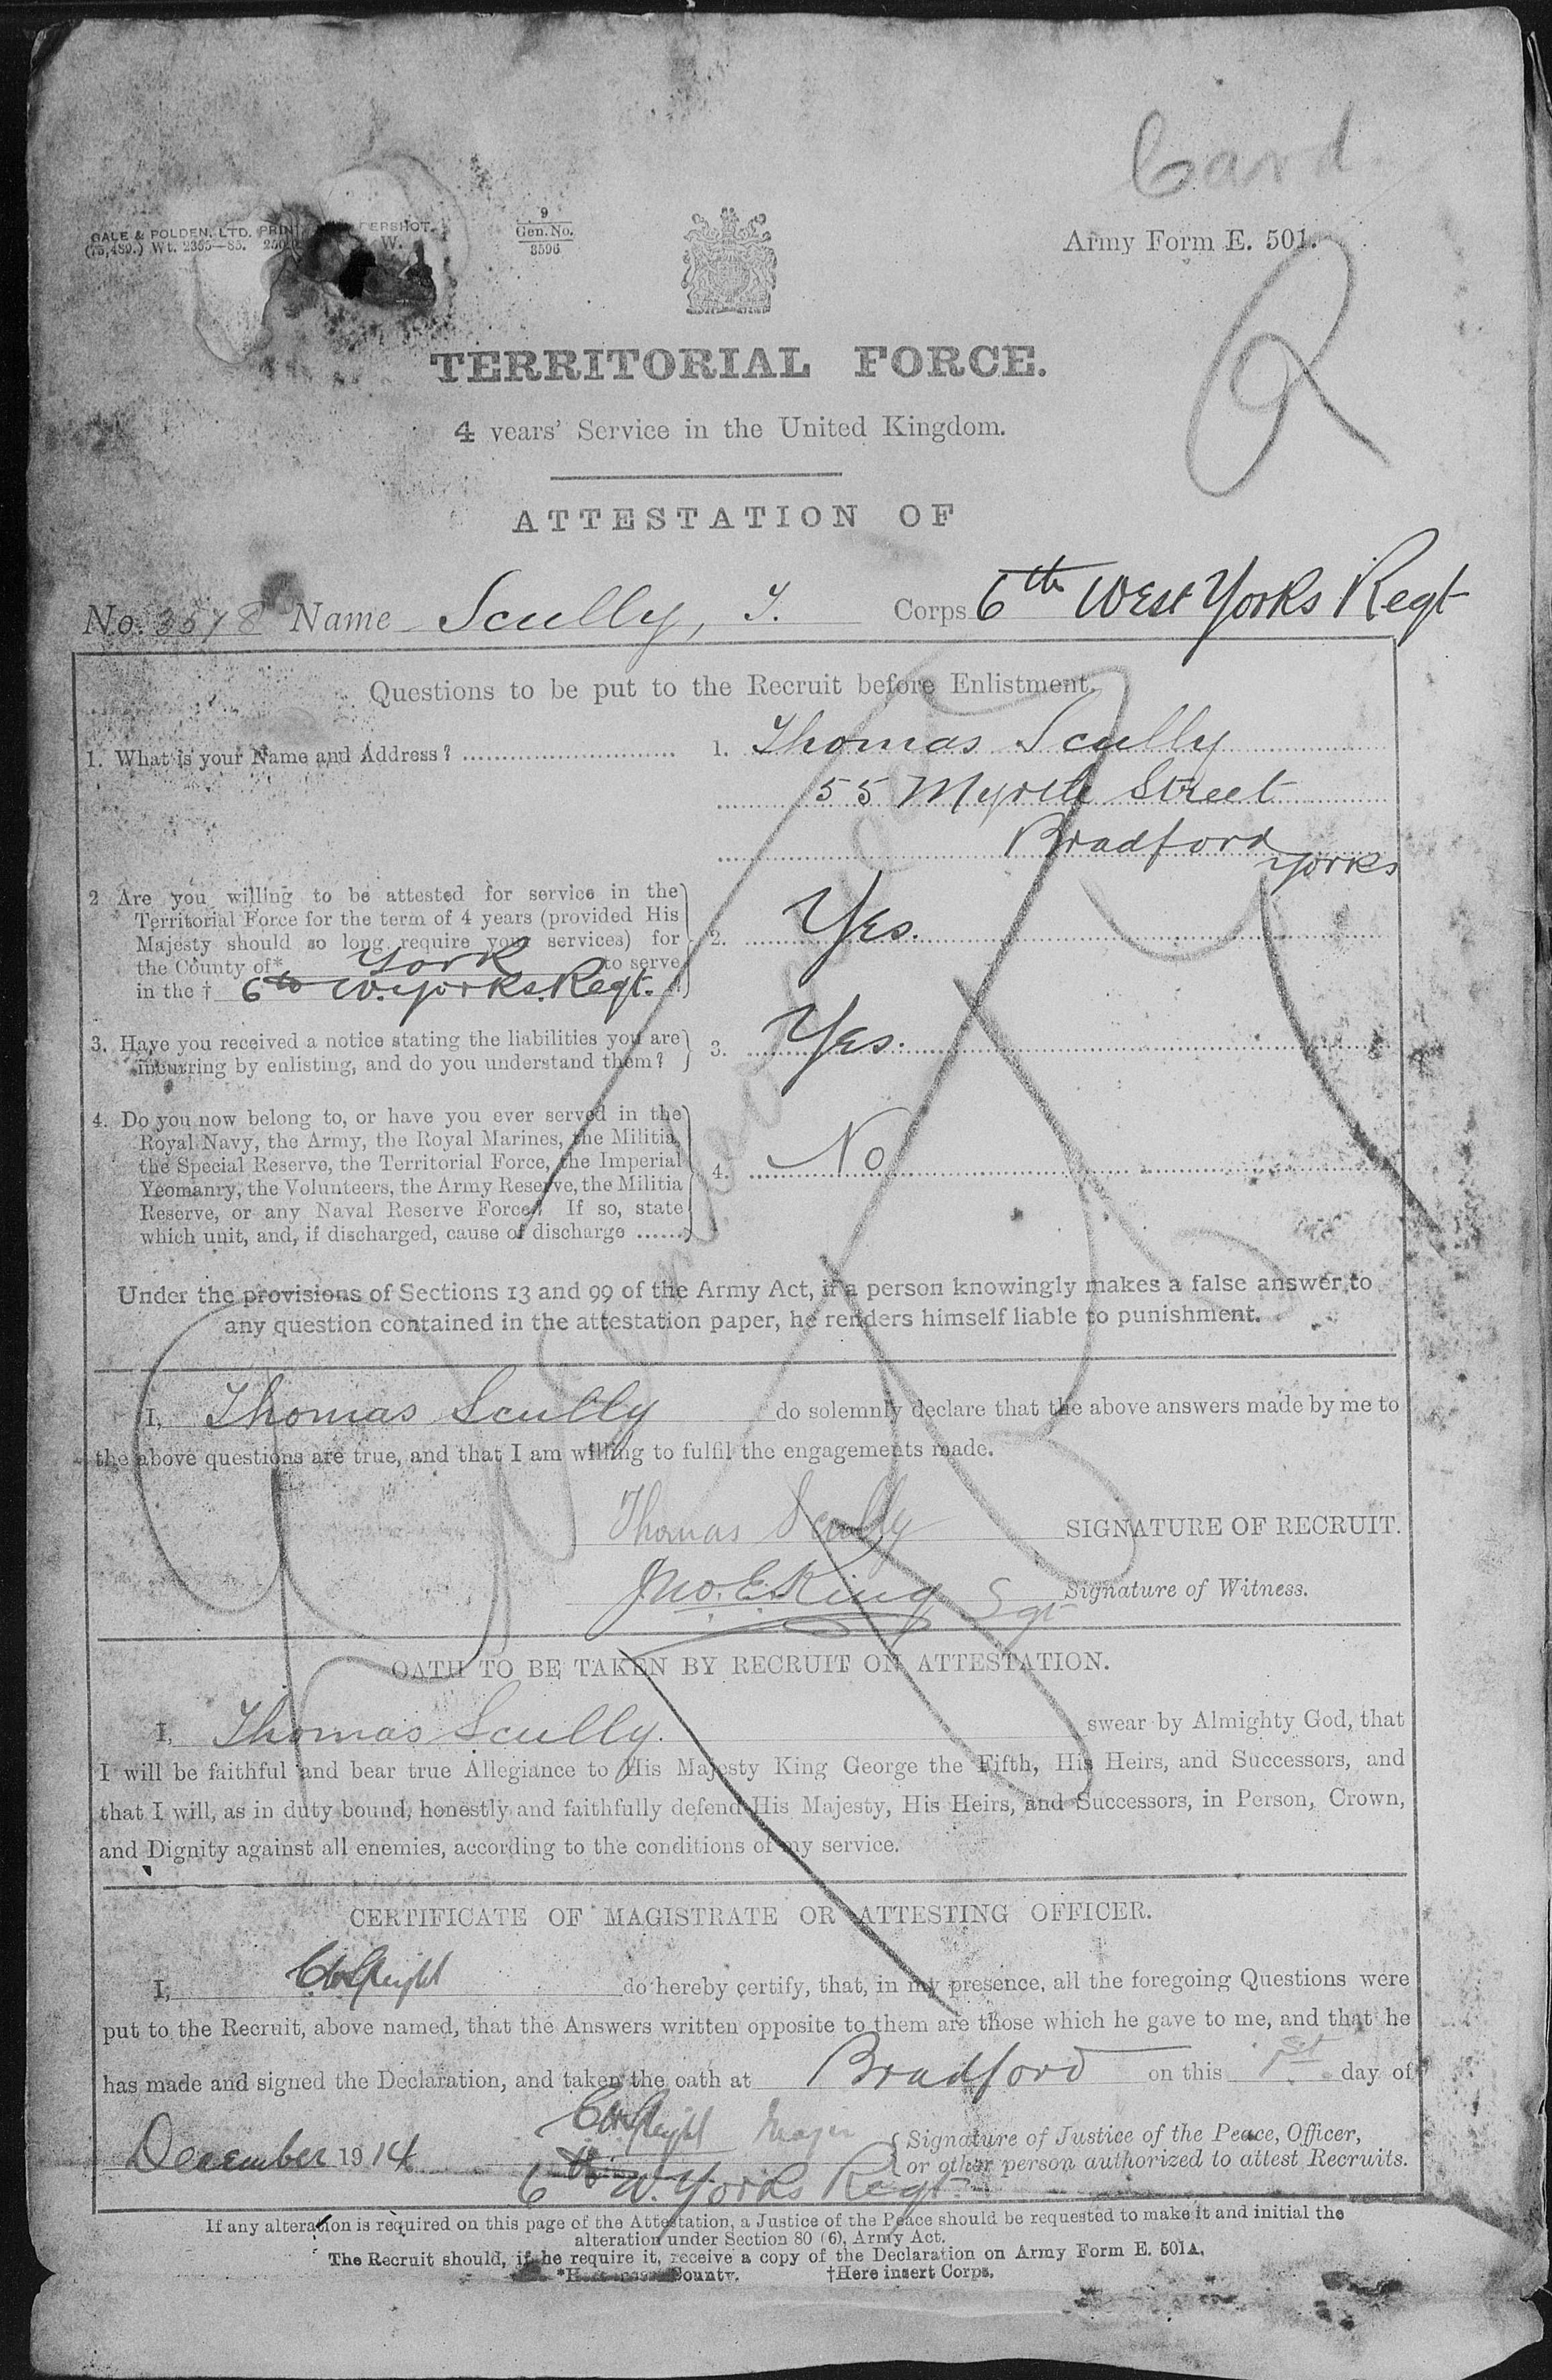 Card
GALE & POLDEN, LTD. PRIN ERSHOT.
(75,489.) Wt. 2355—85. W.
9
Gen. No.
3596
Army Form E. 501.
TERRITORIAL FORCE.
4 years' Service in the United Kingdom.
ATTESTATION OF
No. 3578 Name Scully, T. Corps 6th West Yorks Regt
Questions to be put to the Recruit before Enlistment.
1. What is your Name and Address? 1. Thomas Scully
55 Myrtle Street
Bradford Yorks
2 Are you willing to be attested for service in the
Territorial Force for the term of 4 years (provided His
Majesty should so long require your services) for 2. Yes.
the County of* York to serve
in the † 6th W. Yorks. Regt.
3. Have you received a notice stating the liabilities you are
incurring by enlisting, and do you understand them? 3. Yes.
4. Do you now belong to, or have you ever served in the
Royal Navy, the Army, the Royal Marines, the Militia,
the Special Reserve, the Territorial Force, the Imperial 4. No
Yeomanry, the Volunteers, the Army Reserve, the Militia
Reserve, or any Naval Reserve Force? If so, state
which unit, and, if discharged, cause of discharge
Under the provisions of Sections 13 and 99 of the Army Act, if a person knowingly makes a false answer to
any question contained in the attestation paper, he renders himself liable to punishment.
I, Thomas Scully do solemnly declare that the above answers made by me to
the above questions are true, and that I am willing to fulfil the engagements made.
Thomas Scully SIGNATURE OF RECRUIT.
Jno. E. King Sgt Signature of Witness.
OATH TO BE TAKEN BY RECRUIT ON ATTESTATION.
I, Thomas Scully. swear by Almighty God, that
I will be faithful and bear true Allegiance to His Majesty King George the Fifth, His Heirs, and Successors, and
that I will, as in duty bound, honestly and faithfully defend His Majesty, His Heirs, and Successors, in Person, Crown,
and Dignity against all enemies, according to the conditions of my service.
CERTIFICATE OF MAGISTRATE OR ATTESTING OFFICER.
I, do hereby certify, that, in my presence, all the foregoing Questions were
put to the Recruit, above named, that the Answers written opposite to them are those which he gave to me, and that he
has made and signed the Declaration, and taken the oath at Bradford on this 1st day of
December 1914 Major Signature of Justice of the Peace, Officer,
or other person authorized to attest Recruits.
6th W. Yorks Regt.
If any alteration is required on this page of the Attestation, a Justice of the Peace should be requested to make it and initial the
alteration under Section 80 (6), Army Act.
The Recruit should, if he require it, receive a copy of the Declaration on Army Form E. 501A.
County. †Here insert Corps.